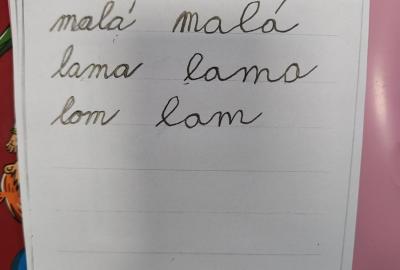 malá malá
lama lama
lom lom